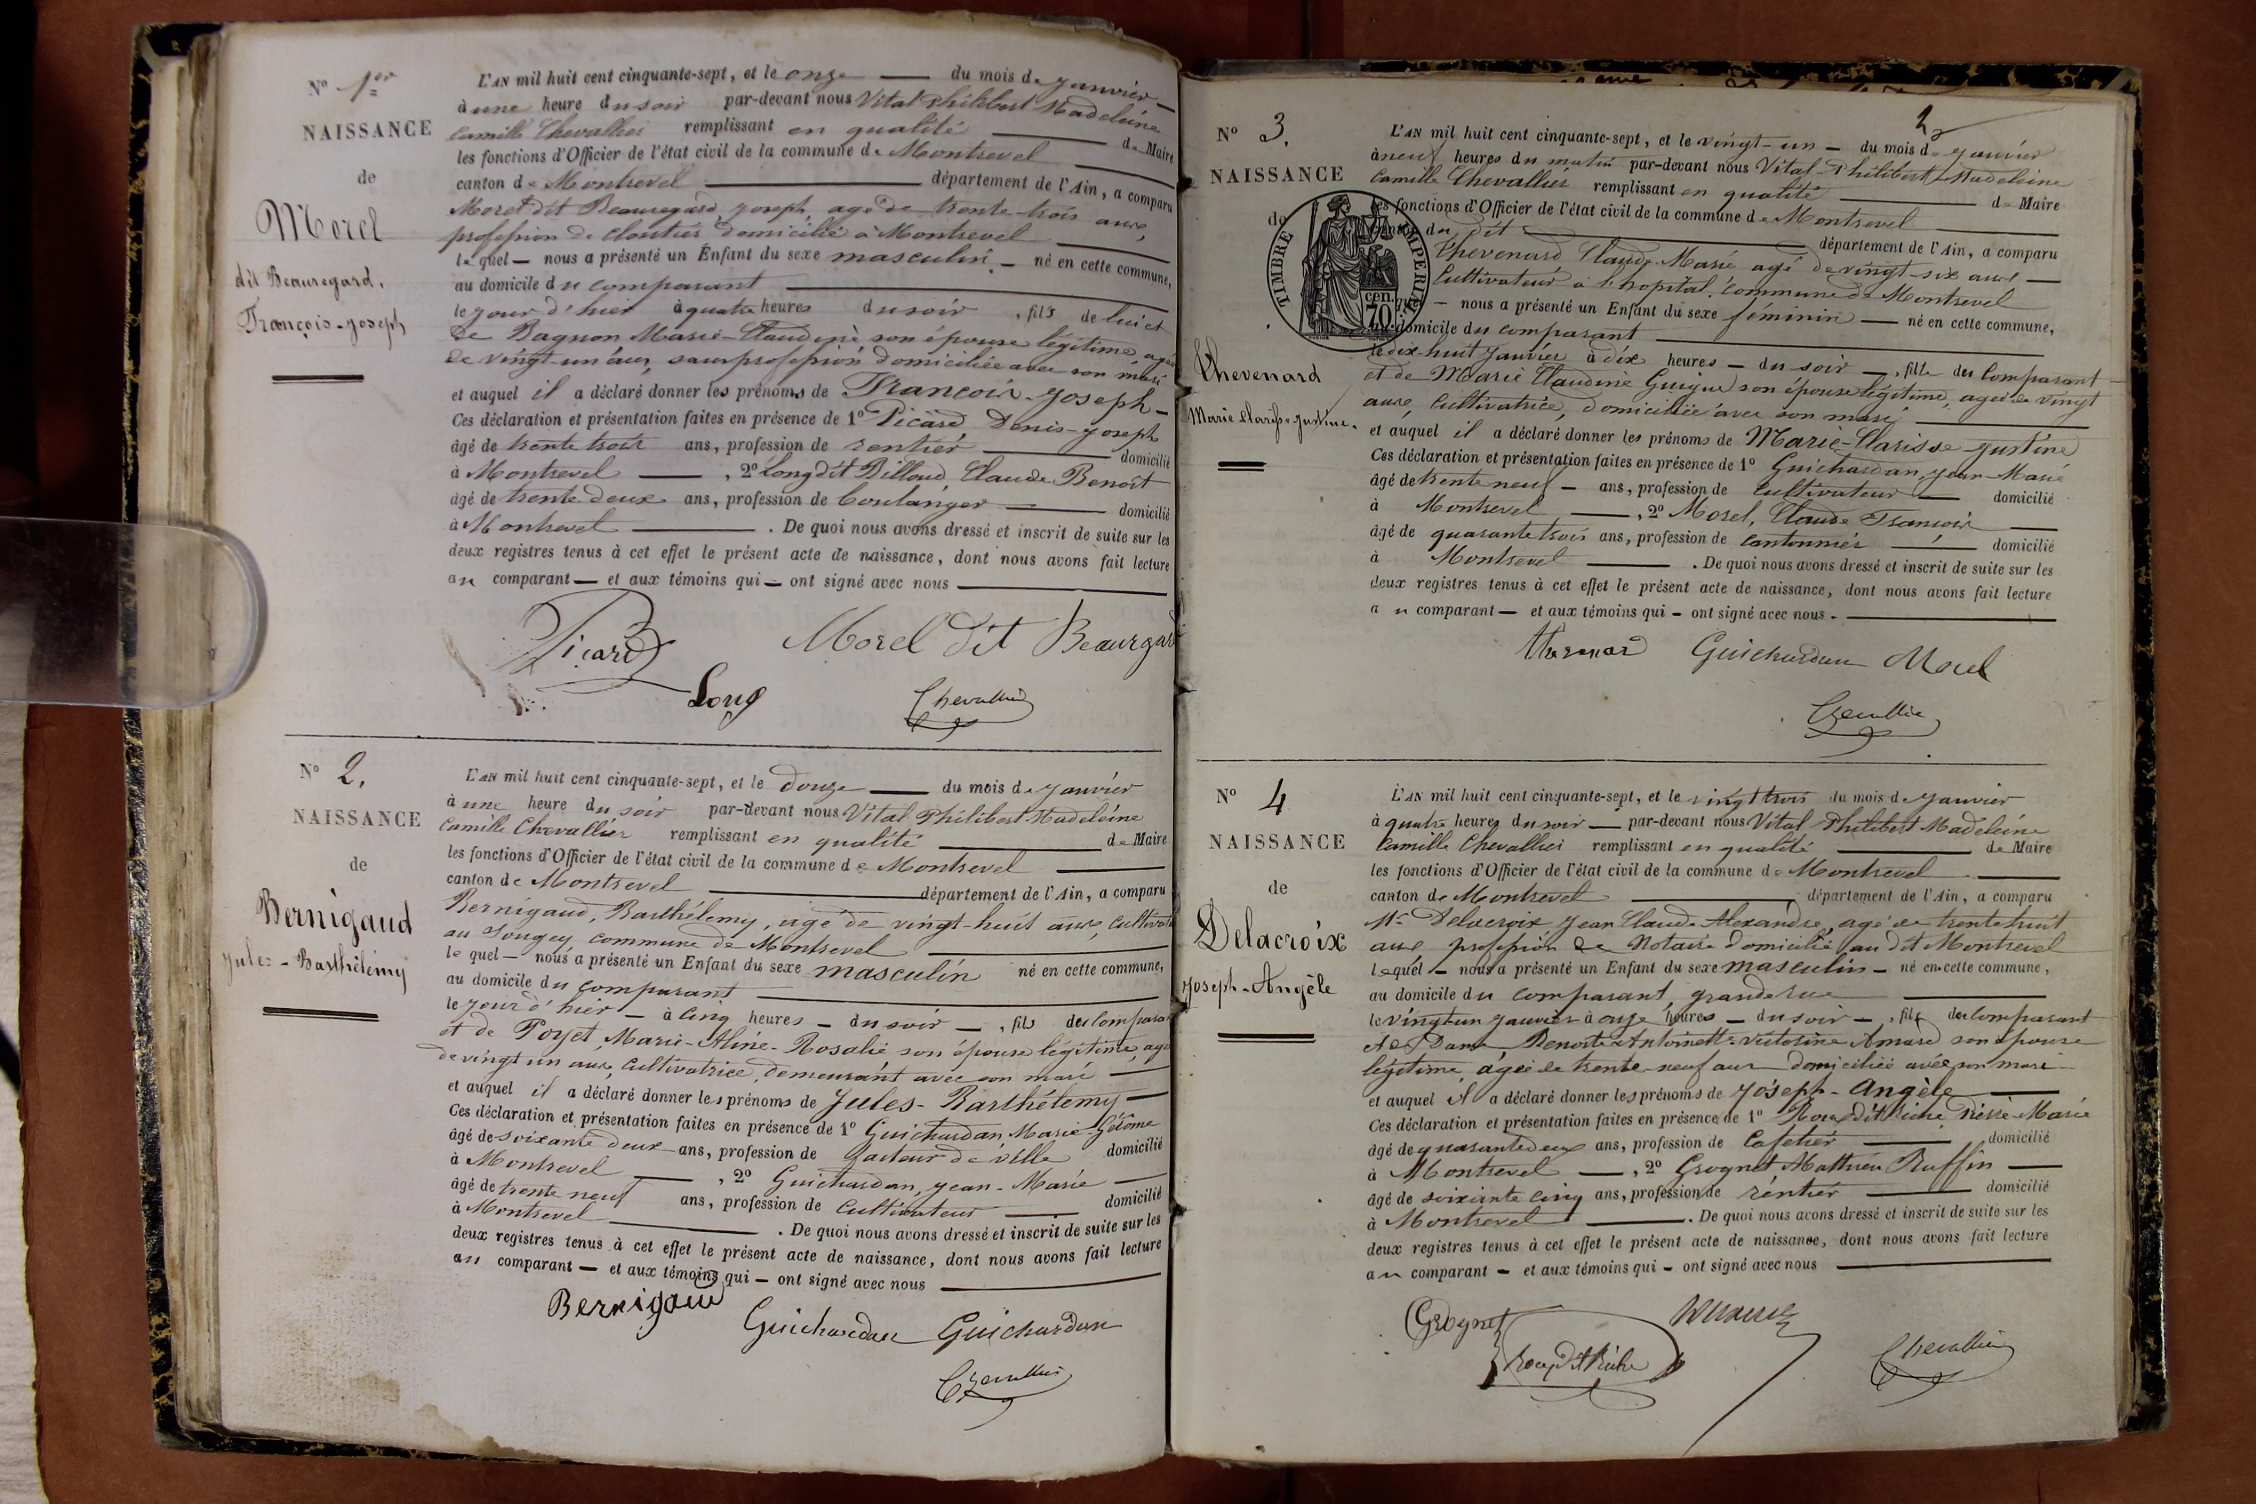 N° 1er
NAISSANCE
de
Morel
dit Beauregard,
François-Joseph
L'AN mil huit cent cinquante-sept, et le onze du mois de janvier
à une heure du soir par-devant nous Vital Philibert Madeleine
Camille Chevallier remplissant en qualité de Maire
les fonctions d'Officier de l'état civil de la commune de Montrevel
canton de Montrevel département de l'Ain, a comparu
Morel dit Beauregard, Joseph, agé de trente-trois ans,
profession de cloutier domicilié à Montrevel
lequel — nous a présenté un Enfant du sexe masculin — né en cette commune,
au domicile du comparant
le jour d'hier à quatre heures du soir, fils de lui et
de Bagnon Marie-Claudine son épouse légitime, agée
de vingt-un ans, sans profession domiciliée avec son mari
et auquel il a déclaré donner les prénoms de François-Joseph —
Ces déclaration et présentation faites en présence de 1° Picard Denis-Joseph
âgé de trente trois ans, profession de rentier domicilié
à Montrevel —, 2° Long dit Billoud, Claude Benoit
âgé de trente deux ans, profession de boulanger domicilié
à Montrevel. De quoi nous avons dressé et inscrit de suite sur les
deux registres tenus à cet effet le présent acte de naissance, dont nous avons fait lecture
au comparant — et aux témoins qui — ont signé avec nous
Picard Morel dit Beaurgard
Long Chevallier
N° 2.
NAISSANCE
de
Bernigaud
Jules-Barthélemy
L'AN mil huit cent cinquante-sept, et le douze du mois de janvier
à une heure du soir par-devant nous Vital Philibert Madeleine
Camille Chevallier remplissant en qualité de Maire
les fonctions d'Officier de l'état civil de la commune de Montrevel
canton de Montrevel département de l'Ain, a comparu
Bernigaud, Barthélemy, agé de vingt-huit ans, cultivat
au Sougey commune de Montrevel
lequel — nous a présenté un Enfant du sexe masculin né en cette commune,
au domicile du comparant
le jour d'hier — à cinq heures — du soir —, fils du comparant
et de Poyet, Marie-Aline-Rosalie son épouse légitime, agé
de vingt un ans, cultivatrice, demeurant avec son mari
et auquel il a déclaré donner les prénoms de Jules-Barthélemy —
Ces déclaration et présentation faites en présence de 1° Guichardan Marie-Jérôme
âgé de soixante deux ans, profession de facteur de ville domicilié
à Montrevel, 2° Guichardan, Jean-Marie
âgé de trente neuf ans, profession de cultivateur domicilié
à Montrevel. De quoi nous avons dressé et inscrit de suite sur les
deux registres tenus à cet effet le présent acte de naissance, dont nous avons fait lecture
au comparant — et aux témoins qui — ont signé avec nous
Bernigaud Guichardan Guichardan
Chevallier
2
N° 3.
NAISSANCE
de
TIMBRE IMPERIAL
70 cen.
Thevenard
Marie Clarisse Justine.
L'AN mil huit cent cinquante-sept, et le vingt-un — du mois de janvier
à neuf heures du matin par-devant nous Vital-Philibert Madeleine
Camille Chevallier remplissant en qualité de Maire
les fonctions d'Officier de l'état civil de la commune de Montrevel
canton du dit département de l'Ain, a comparu
Thevenard Claude-Marie agé de vingt-six ans —
Cultivateur à l'hopital, commune de Montrevel
lequel — nous a présenté un Enfant du sexe féminin — né en cette commune,
au domicile du comparant
le dix-huit janvier à dix heures — du soir —, fille du comparant —
et de Marie Claudine Guigue son épouse légitime, agée de vingt
ans, cultivatrice, domiciliée avec son mari
et auquel il a déclaré donner les prénoms de Marie-Clarisse-Justine
Ces déclaration et présentation faites en présence de 1° Guichardan, Jean-Marie
âgé de trente neuf — ans, profession de cultivateur — domicilié
à Montrevel —, 2° Morel, Claude François
âgé de quarante trois ans, profession de cantonnier — domicilié
à Montrevel. De quoi nous avons dressé et inscrit de suite sur les
deux registres tenus à cet effet le présent acte de naissance, dont nous avons fait lecture
au comparant — et aux témoins qui — ont signé avec nous.
Guichardan Morel
Chevallier
N° 4
NAISSANCE
de
Delacroix
Joseph-Angèle
L'AN mil huit cent cinquante-sept, et le vingt trois du mois de janvier
à quatre heures du soir — par-devant nous Vital Philibert Madeleine
Camille Chevallier remplissant en qualité de Maire
les fonctions d'Officier de l'état civil de la commune de Montrevel
canton de Montrevel département de l'Ain, a comparu
Mr Delacroix Jean Claude Alexandre, agé de trente huit
ans, profession de Notaire domicilié au dit Montrevel
lequel — nous a présenté un Enfant du sexe masculin — né en cette commune,
au domicile du comparant, grande rue
le vingt un janvier à onze heures — du soir —, fils du comparant
et de Dame Benoite Antoinette Victorine Amard son épouse
légitime, agée de trente-neuf ans domiciliée avec son mari
et auquel il a déclaré donner les prénoms de Joseph-Angèle
Ces déclaration et présentation faites en présence de 1° Roux dit Riche, Pierre-Marie
âgé de quarante deux ans, profession de Cafetier domicilié
à Montrevel —, 2° Grognet Mathieu Ruffin —
âgé de soixante cinq ans, profession de rentier domicilié
à Montrevel. De quoi nous avons dressé et inscrit de suite sur les
deux registres tenus à cet effet le présent acte de naissance, dont nous avons fait lecture
au comparant — et aux témoins qui — ont signé avec nous
Grognet Delacroix
Roux dit Riche Chevallier